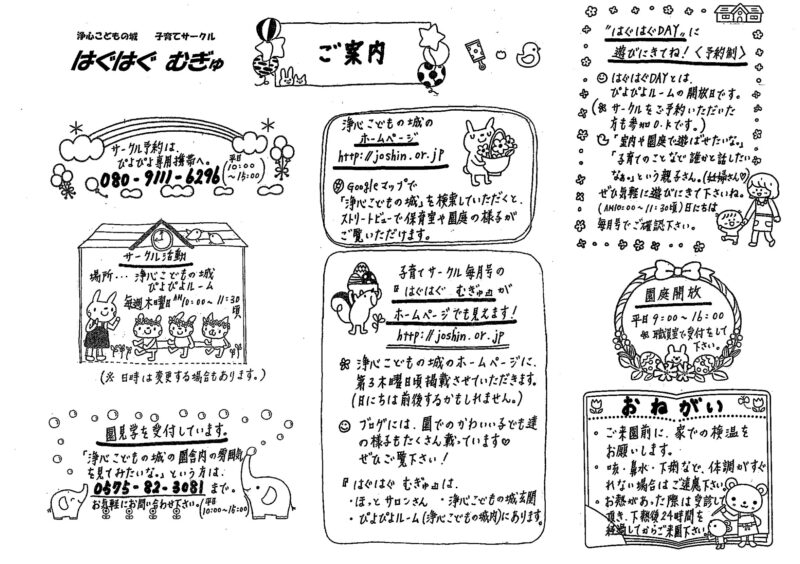 浄心こどもの城 子育てサークル
はぐはぐ むぎゅ
ご案内
サークル予約は、
ぴよぴよ専用携帯へ。
080-9111-6296
平日
10:00
~15:00
サークル活動
場所… 浄心こどもの城
ぴよぴよルーム
毎週木曜日 AM10:00~11:30頃
(※日時は変更する場合もあります。)
園見学を受付しています。
「浄心こどもの城の園舎内の雰囲気
を見てみたいな。」という方は、
0575-82-3081 まで。
お気軽にお問い合わせ下さい。(平日
10:00~15:00
浄心こどもの城の
ホームページ
http://joshin.or.jp
Googleマップで
「浄心こどもの城」を検索していただくと、
ストリートビューで保育室や園庭の様子が
ご覧いただけます。
子育てサークル毎月号の
『はぐはぐ むぎゅ』が
ホームページでも見えます!
http://joshin.or.jp
浄心こどもの城のホームページに、
第3木曜日頃掲載させていただきます。
(日にちは前後するかもしれません。)
ブログには、園でのかわいい子ども達
の様子もたくさん載っています♡
ぜひご覧下さい!
『はぐはぐ むぎゅ』は、
・ほっとサロンさん ・浄心こどもの城玄関
・ぴよぴよルーム(浄心こどもの城内)にあります。
"はぐはぐDAY"に
遊びにきてね!〈予約制〉
はぐはぐDAYとは、
ぴよぴよルームの開放日です。
(※サークルをご予約いただいた
方も参加O.Kです。)
「室内や園庭で遊ばせたいな。」
「子育てのことなどで誰かと話したい
なぁ。」という親子さん。(妊婦さん♡)
ぜひ気軽に遊びにきて下さいね。
(AM10:00~11:30頃)日にちは
毎月号でご確認下さい。
園庭開放
平日9:00~16:00
※職員室で受付をして
下さい。
おねがい
・ご来園前に、家での検温を
お願いします。
・咳・鼻水・下痢など、体調がすぐ
れない場合はご遠慮下さい。
・お熱があった際は受診して
頂き、下熱後24時間を
経過してからご来園下さい。